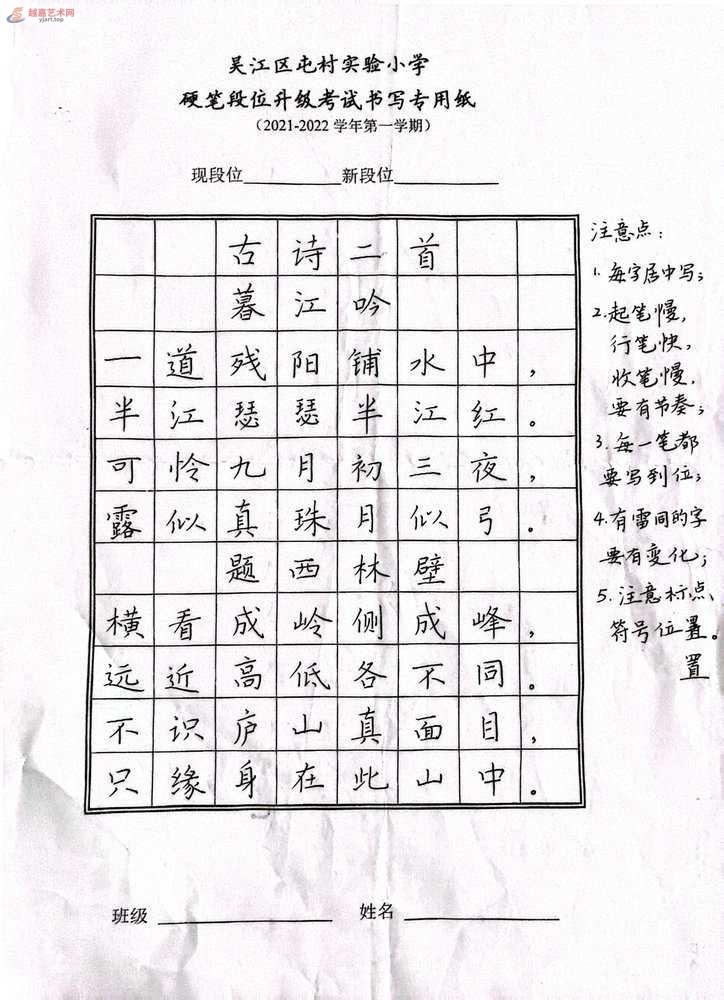 越嘉艺术网
yjart.top
吴江区屯村实验小学
硬笔段位升级考试书写专用纸
（2021-2022 学年第一学期）
现段位__________新段位__________
古诗二首
暮江吟
一道残阳铺水中，
半江瑟瑟半江红。
可怜九月初三夜，
露似真珠月似弓。
题西林壁
横看成岭侧成峰，
远近高低各不同。
不识庐山真面目，
只缘身在此山中。
注意点：
1. 每字居中写；
2. 起笔慢，
行笔快，
收笔慢，
要有节奏；
3. 每一笔都
要写到位；
4. 有雷同的字
要有变化；
5. 注意标点
符号位置。
置
班级 __________ 姓名 __________